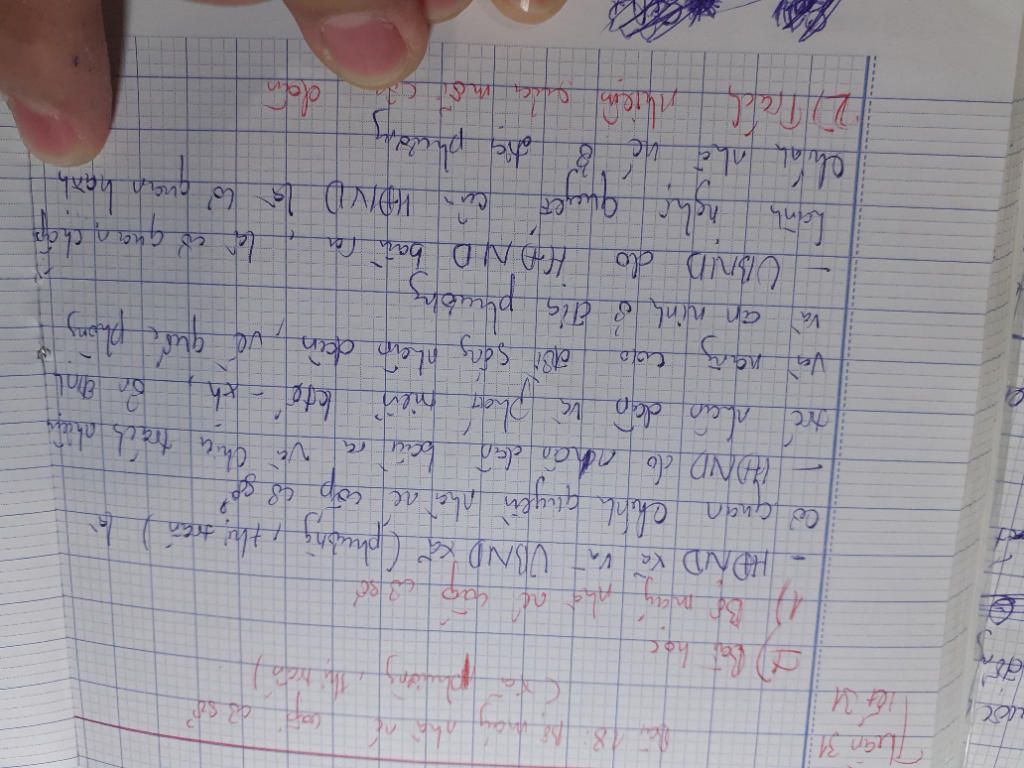 Tuần 31
Tiết 31
Bài 18: Bộ máy nhà nc cấp cơ sở
(xã, phường, thị trấn)
I) Bài học
1) Bộ máy nhà nc cấp cơ sở
- HĐND xã và UBND xã (phường, thị trấn) là
cơ quan chính quyền nhà nc cấp cơ sở
- HĐND do nhân dân bầu ra và chịu trách nhiệm
trc nhân dân về phát triển ktế - xh, ổn định
và nâng cao đời sống nhân dân, về quốc phòng
và an ninh ở địa phương
- UBND do HĐND bầu ra, là cơ quan chấp
hành nghị quyết của HĐND là cơ quan hành
chính nhà nc ở địa phương
2) Trách nhiệm của mỗi công dân